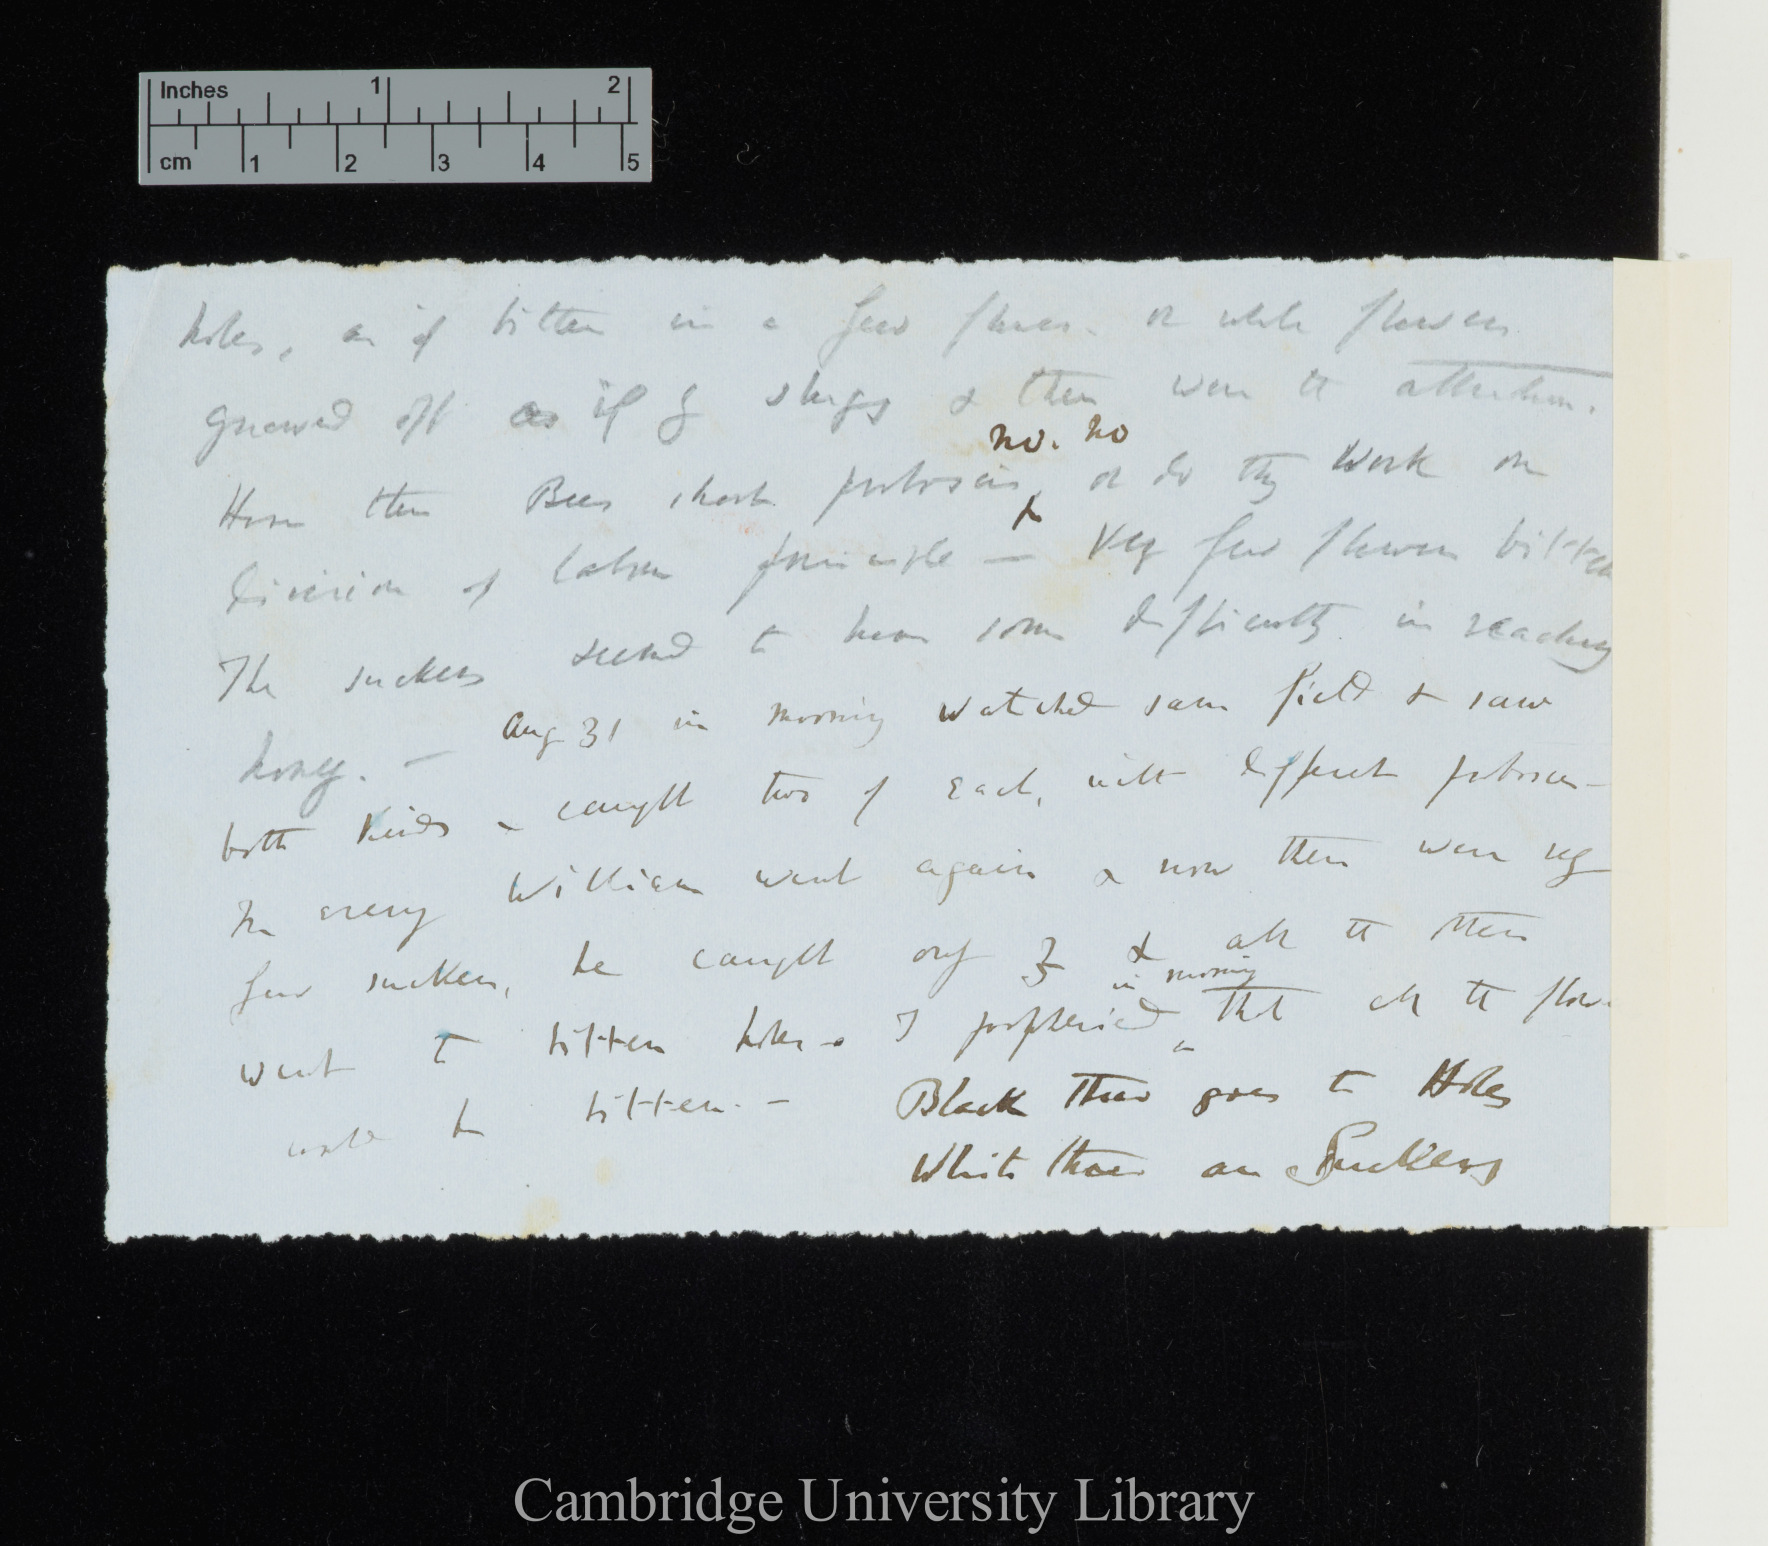 Inches 1 2
cm 1 2 3 4 5
holes, as if bitten in a few places. or whole flowers
gnawed off as if by slugs & these were the attraction.
no. no
Have these Bees short proboscis, or do they work on
division of labour principle — Very few flowers bitten
The suckers seemed to have some difficulty in reaching
honey. — Aug 31 in morning watched same field & saw
both kinds & caught two of each, with different proboscis —
In evening William went again & now there were very
few suckers, he caught only 3 & all the others
in morning
went to bitten holes — I prophesied that all the flow
would be bitten. —
Black thread goes to Holes
White thread are Suckers
Cambridge University Library